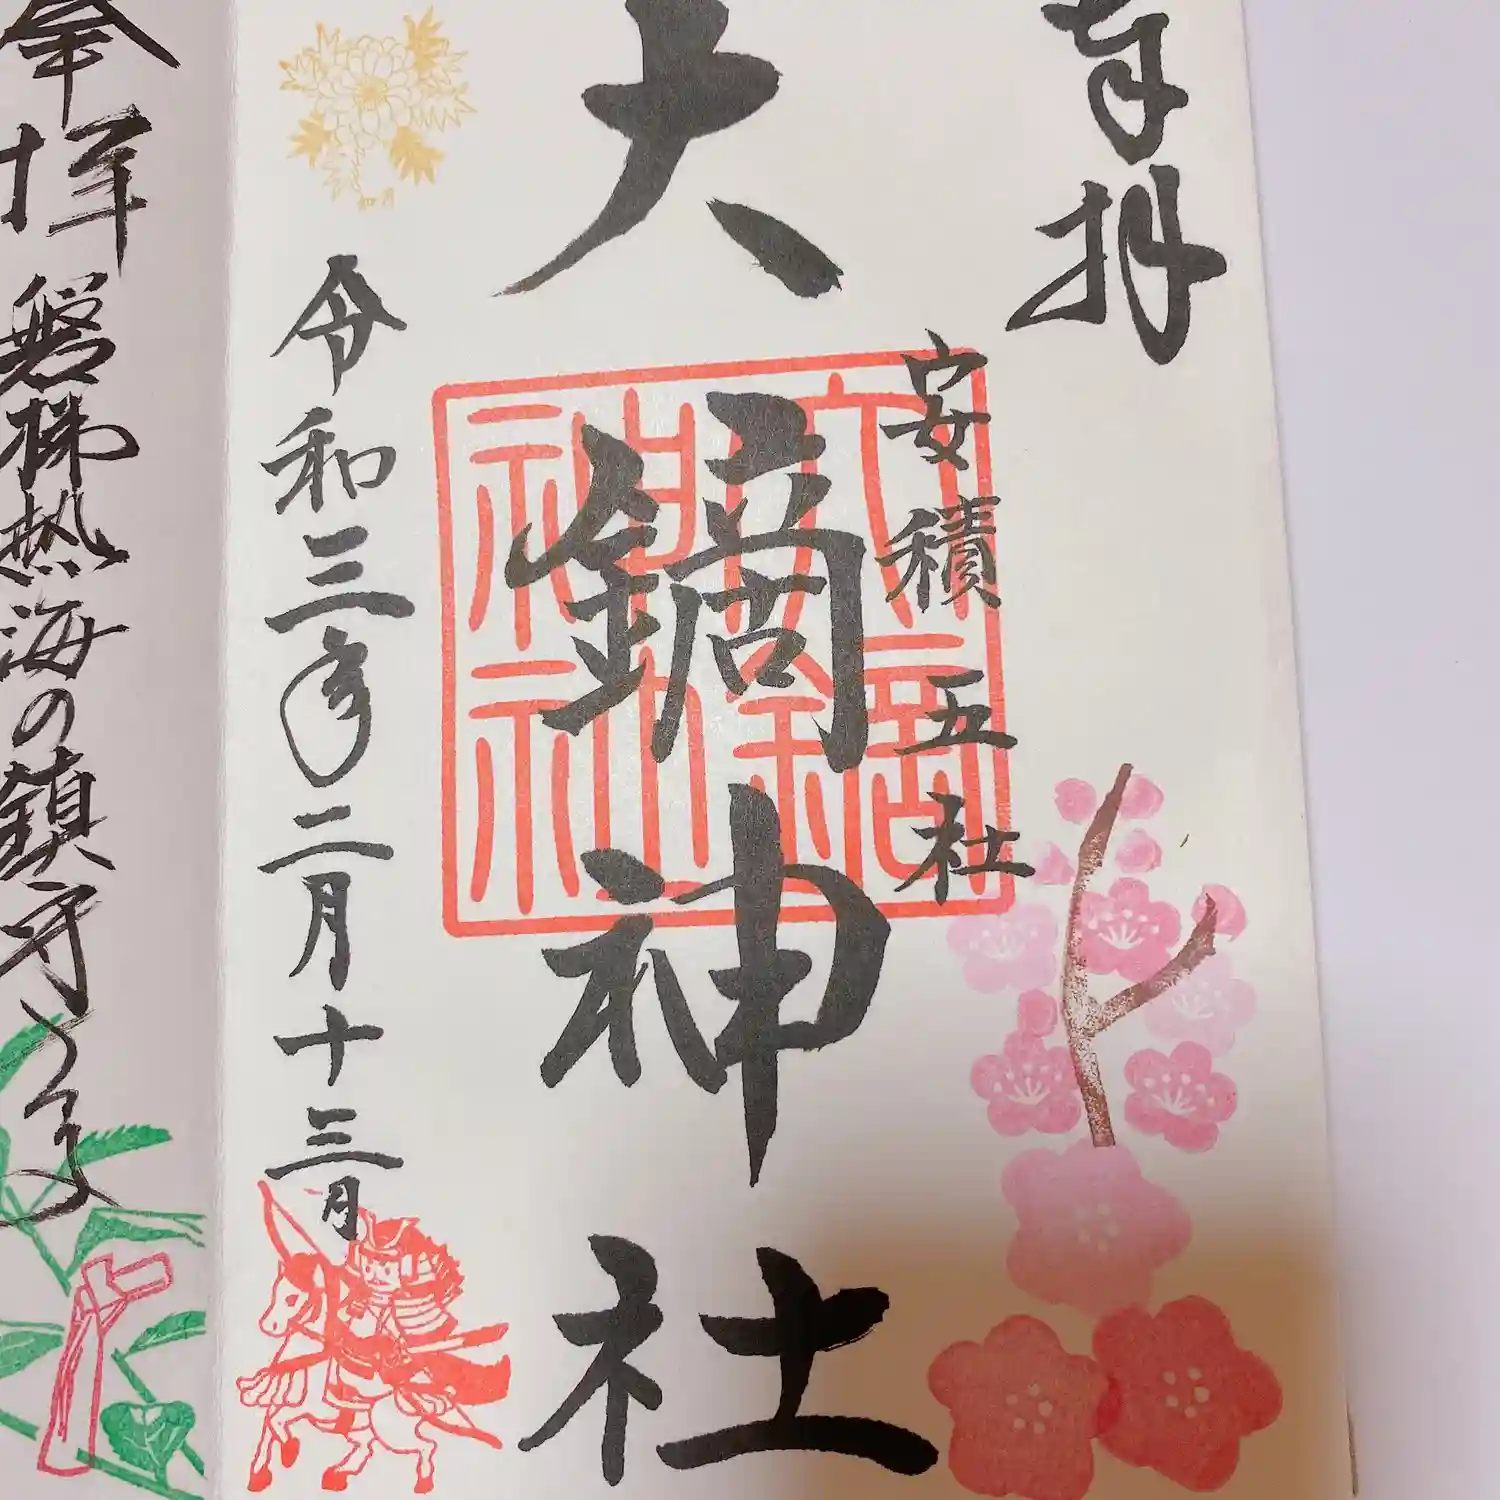 奉拝
安積五社
大鏑神社
令和三年二月十三日
如月
奉拝
磐梯熱海の鎮守